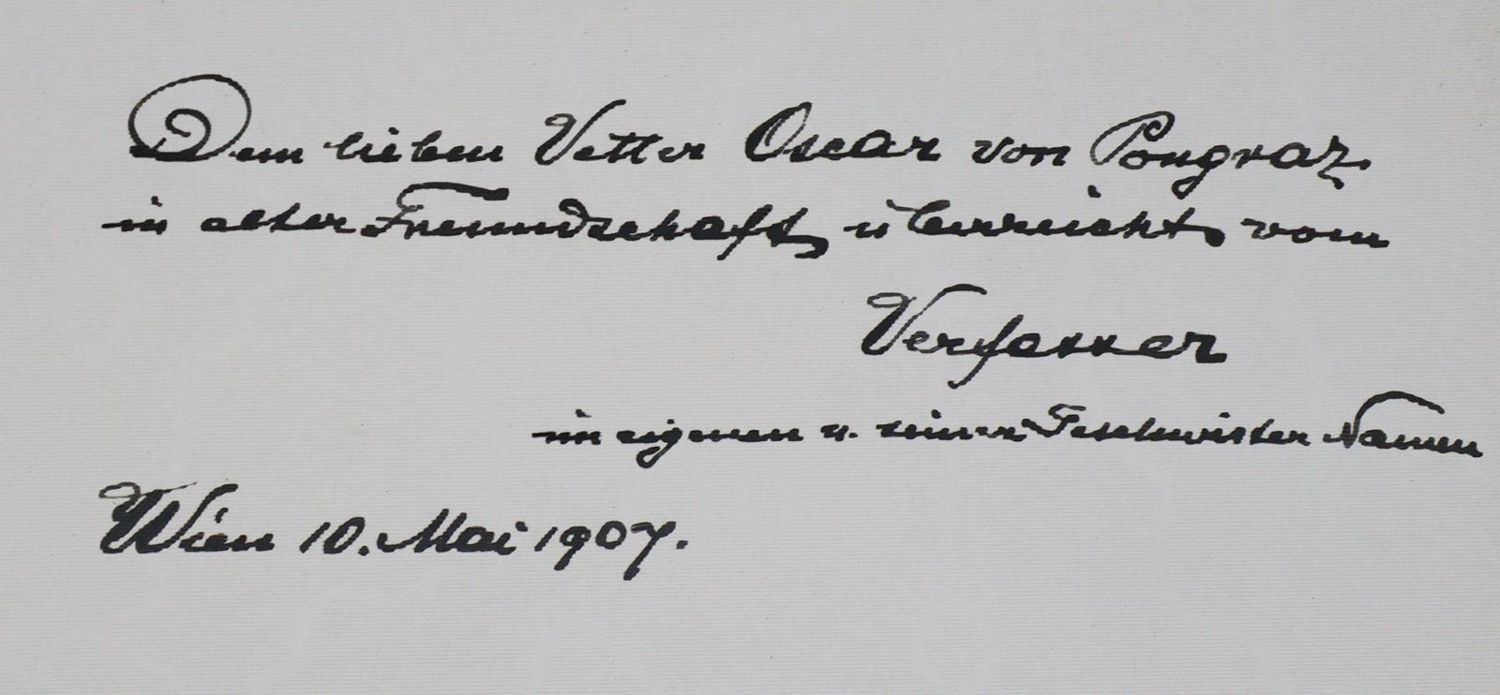 Dem lieben Vetter Oscar von Pongraz
in alter Freundschaft überreicht vom
Verfasser
im eigenen u. seiner Geschwister Namen
Wien 10. Mai 1907.